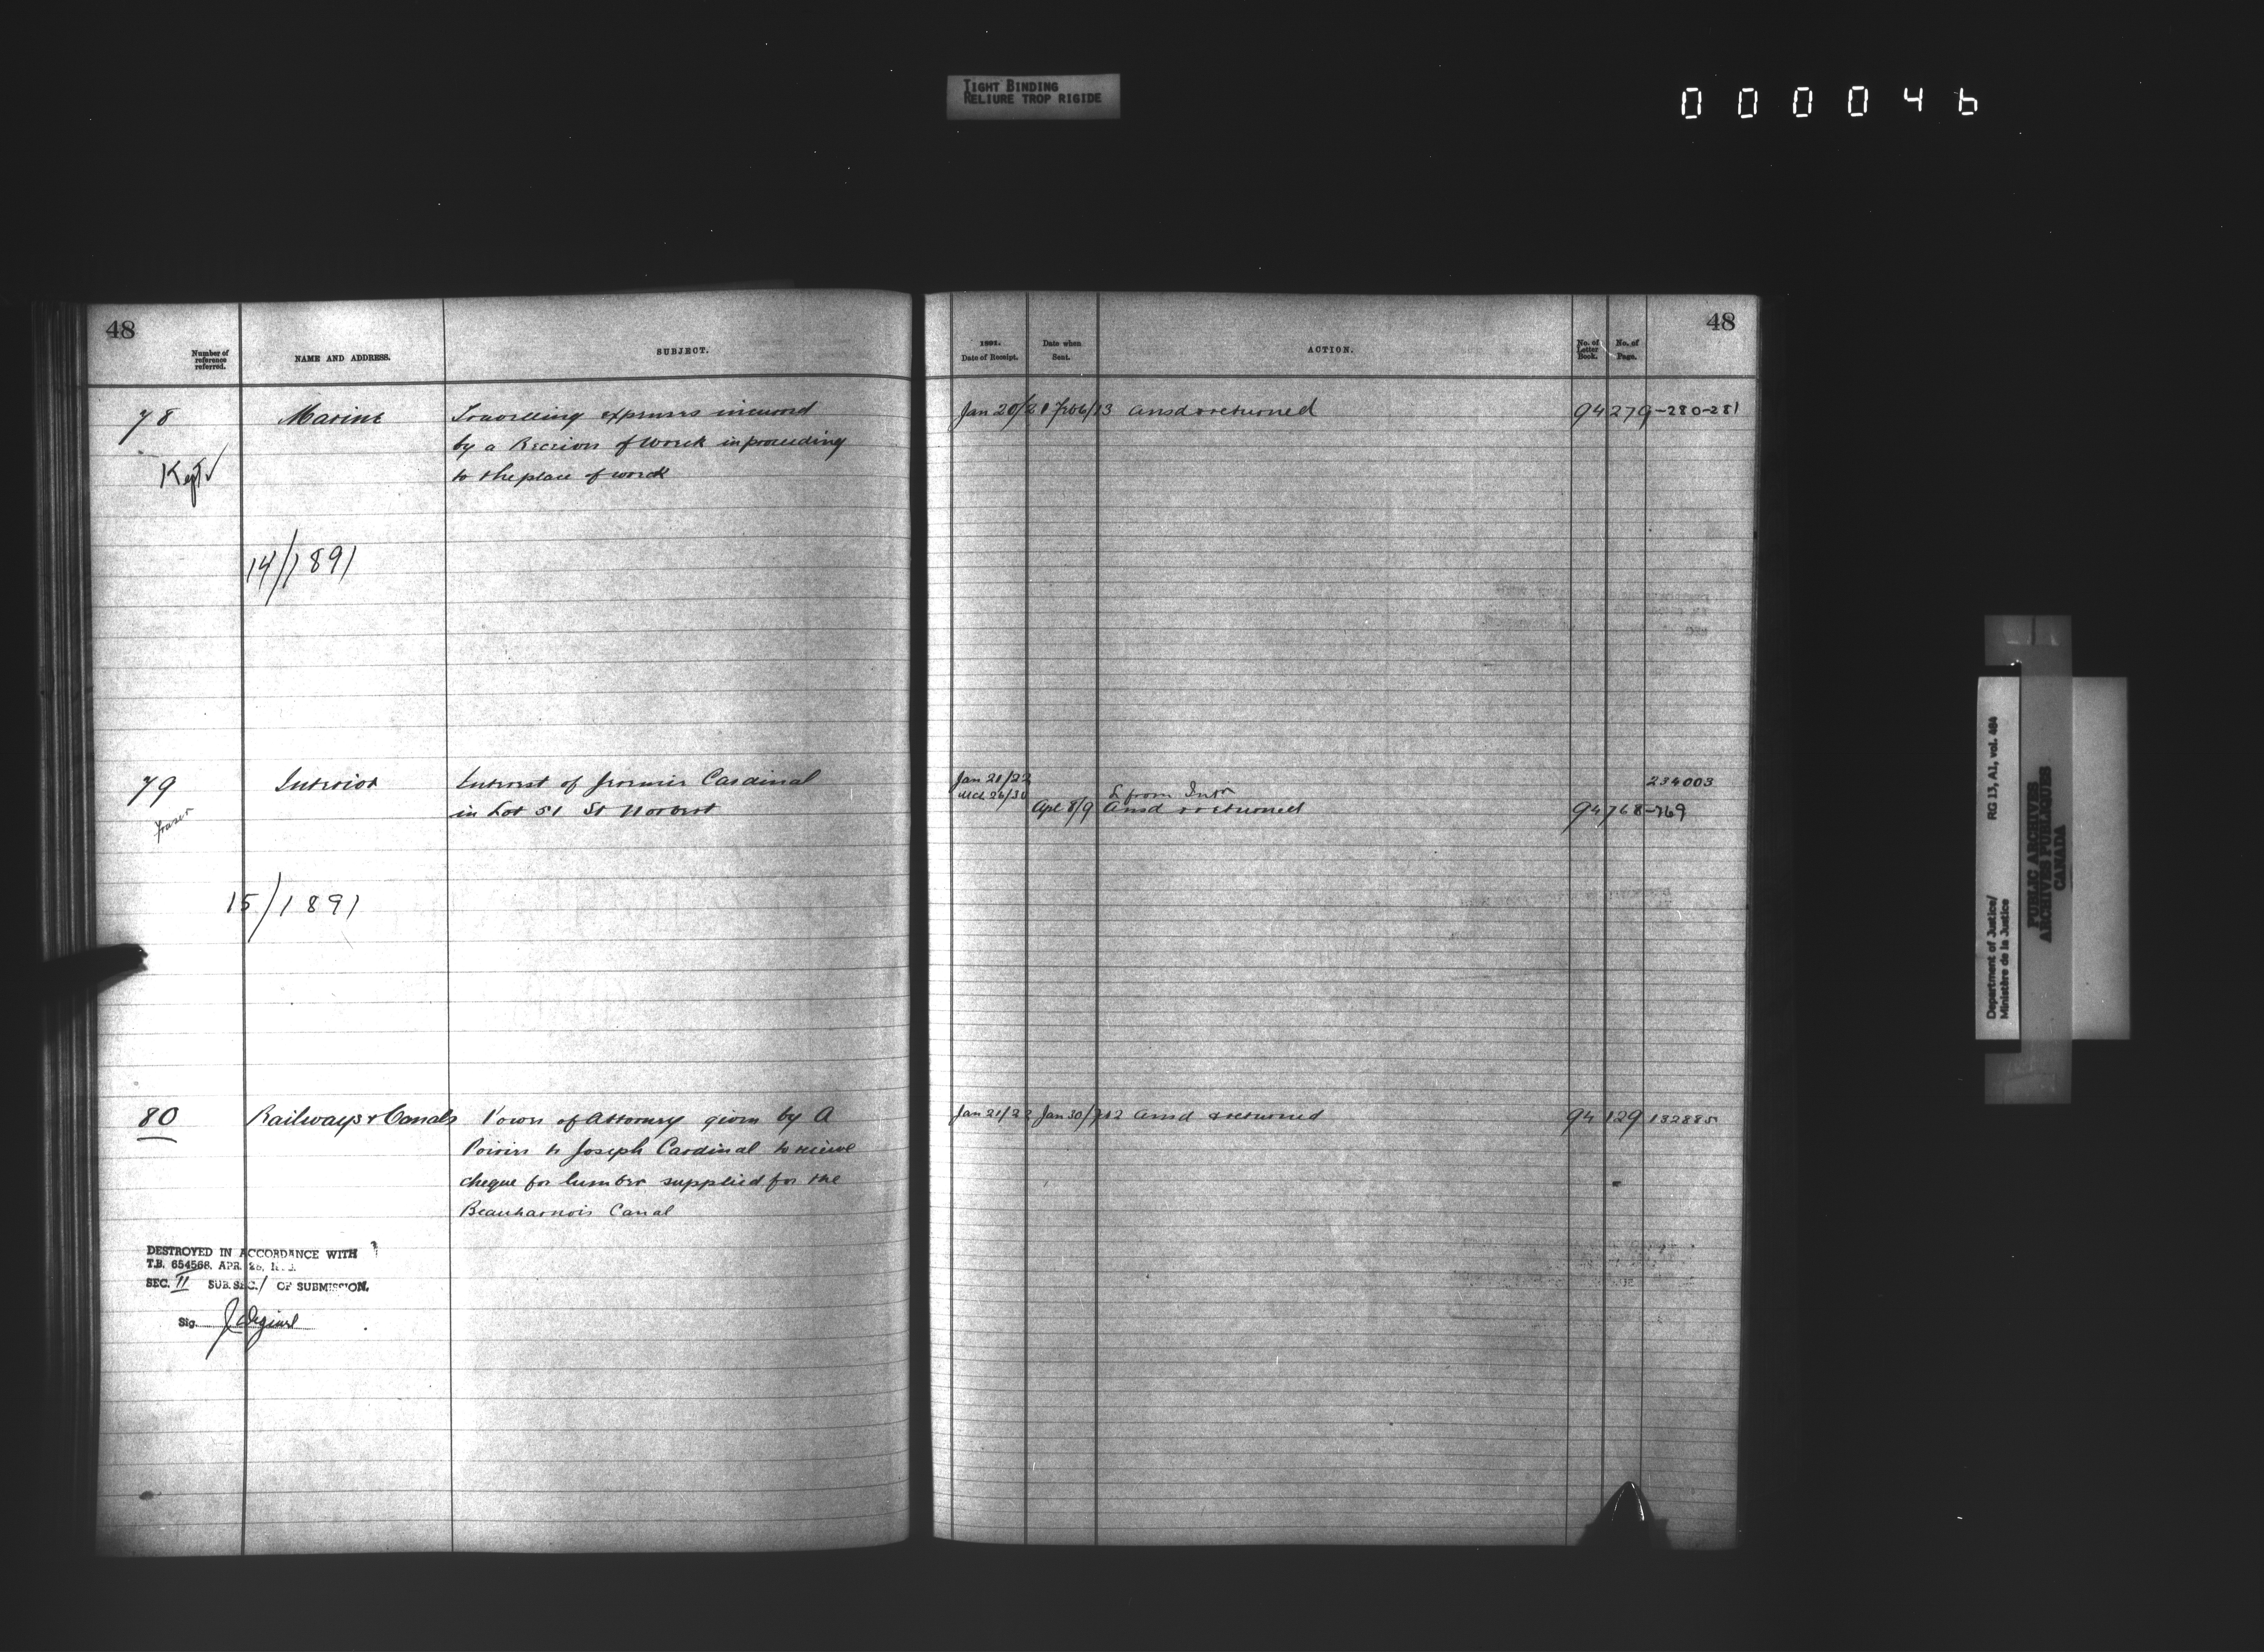 TIGHT BINDING
RELIURE TROP RIGIDE
000046
48
Number of reference referred.
NAME AND ADDRESS.
SUBJECT.
78
Marine
Travelling expenses incurred
by a Receiver of Wreck in proceeding
to the place of wreck
Kept ✓
14/1891
79
Interior
Interest of Cardinal
in Lot 51 St Norbert
Fraser
15/1891
80
Railways & Canals
Power of Attorney given by A
Poirier to Joseph Cardinal to receive
cheque for lumber supplied for the
Beauharnois Canal
DESTROYED IN ACCORDANCE WITH
T.B. 654568. APR. 28,
SEC. II SUB. SEC. 1 OF SUBMISSION.
Sig.
48
1891.
Date of Receipt.
Date when Sent.
ACTION.
No. of Letter Book.
No. of Page.
Jan 20/21 Feb 6/13 Ansd & returned 94 279-280-281
Jan 21/22 234003
Mch 26/30 L from Intr
Apl 8/9 Ansd & returned 94 768-769
Jan 21/22 Jan 30/ Ansd & returned 94 129 132885
Department of Justice/
Ministère de la Justice
RG 13, A1, vol. 464
PUBLIC ARCHIVES
ARCHIVES PUBLIQUES
CANADA